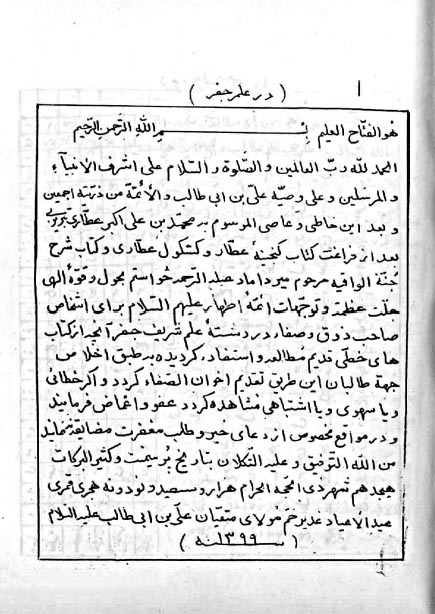 ( در علم جفر ) ١
هو الفتاح العلیم بسم الله الرحمن الرحیم
الحمد لله رب العالمین والصلوة والسلام علی اشرف الانبیآء
والمرسلین وعلی وصیه علی بن ابی طالب والأئمة من ذریته اجمعین
وبعد این خاطی وعاصی الموسوم به محمد بن علی اکبر عطاری
بعد از فراغت کتاب گنجینهٔ عطار و کشکول عطاری و کتاب شرح
جنة الواقیه مرحوم میرداماد علیه الرحمه خواستم بحول و قوهٔ الهی
جلّت عظمته و توجهات ائمهٔ اطهار علیهم السلام برای اشخاص
صاحب ذوق و صفاء در رشتهٔ علم شریف جفر آنچه از کتاب
های خطی قدیم مطالعه و استفاده گردیده بر طبق اخلاص
جهة طالبان این طریق تقدیم اخوان الصفاء گردد و اگر خطائی
و یا سهوی و یا اشتباهی مشاهده گردد عفو و اغماض فرمایند
و در مواقع مخصوص از دعای خیر و طلب مغفرت مضایقه نمایند
من الله التوفیق و علیه التکلان بتاریخ یوم و کثیر البرکات
هیجدهم شهر ذی الحجة الحرام هزار و سیصد و نود و نه هجری قمری
عید الأعیاد غدیر خم مولای متقیان علی بن ابی طالب علیه السلام
( ١٣٩٩ سنه )